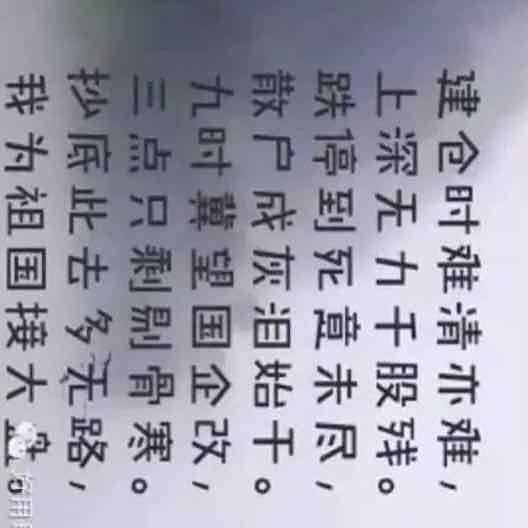 建仓时难清亦难，
上深无力千股残。
跌停到死意未尽，
散户成灰泪始干。
九时冀望国企改，
三点只剩剔骨寒。
抄底此去多无路，
我为祖国接大盘。